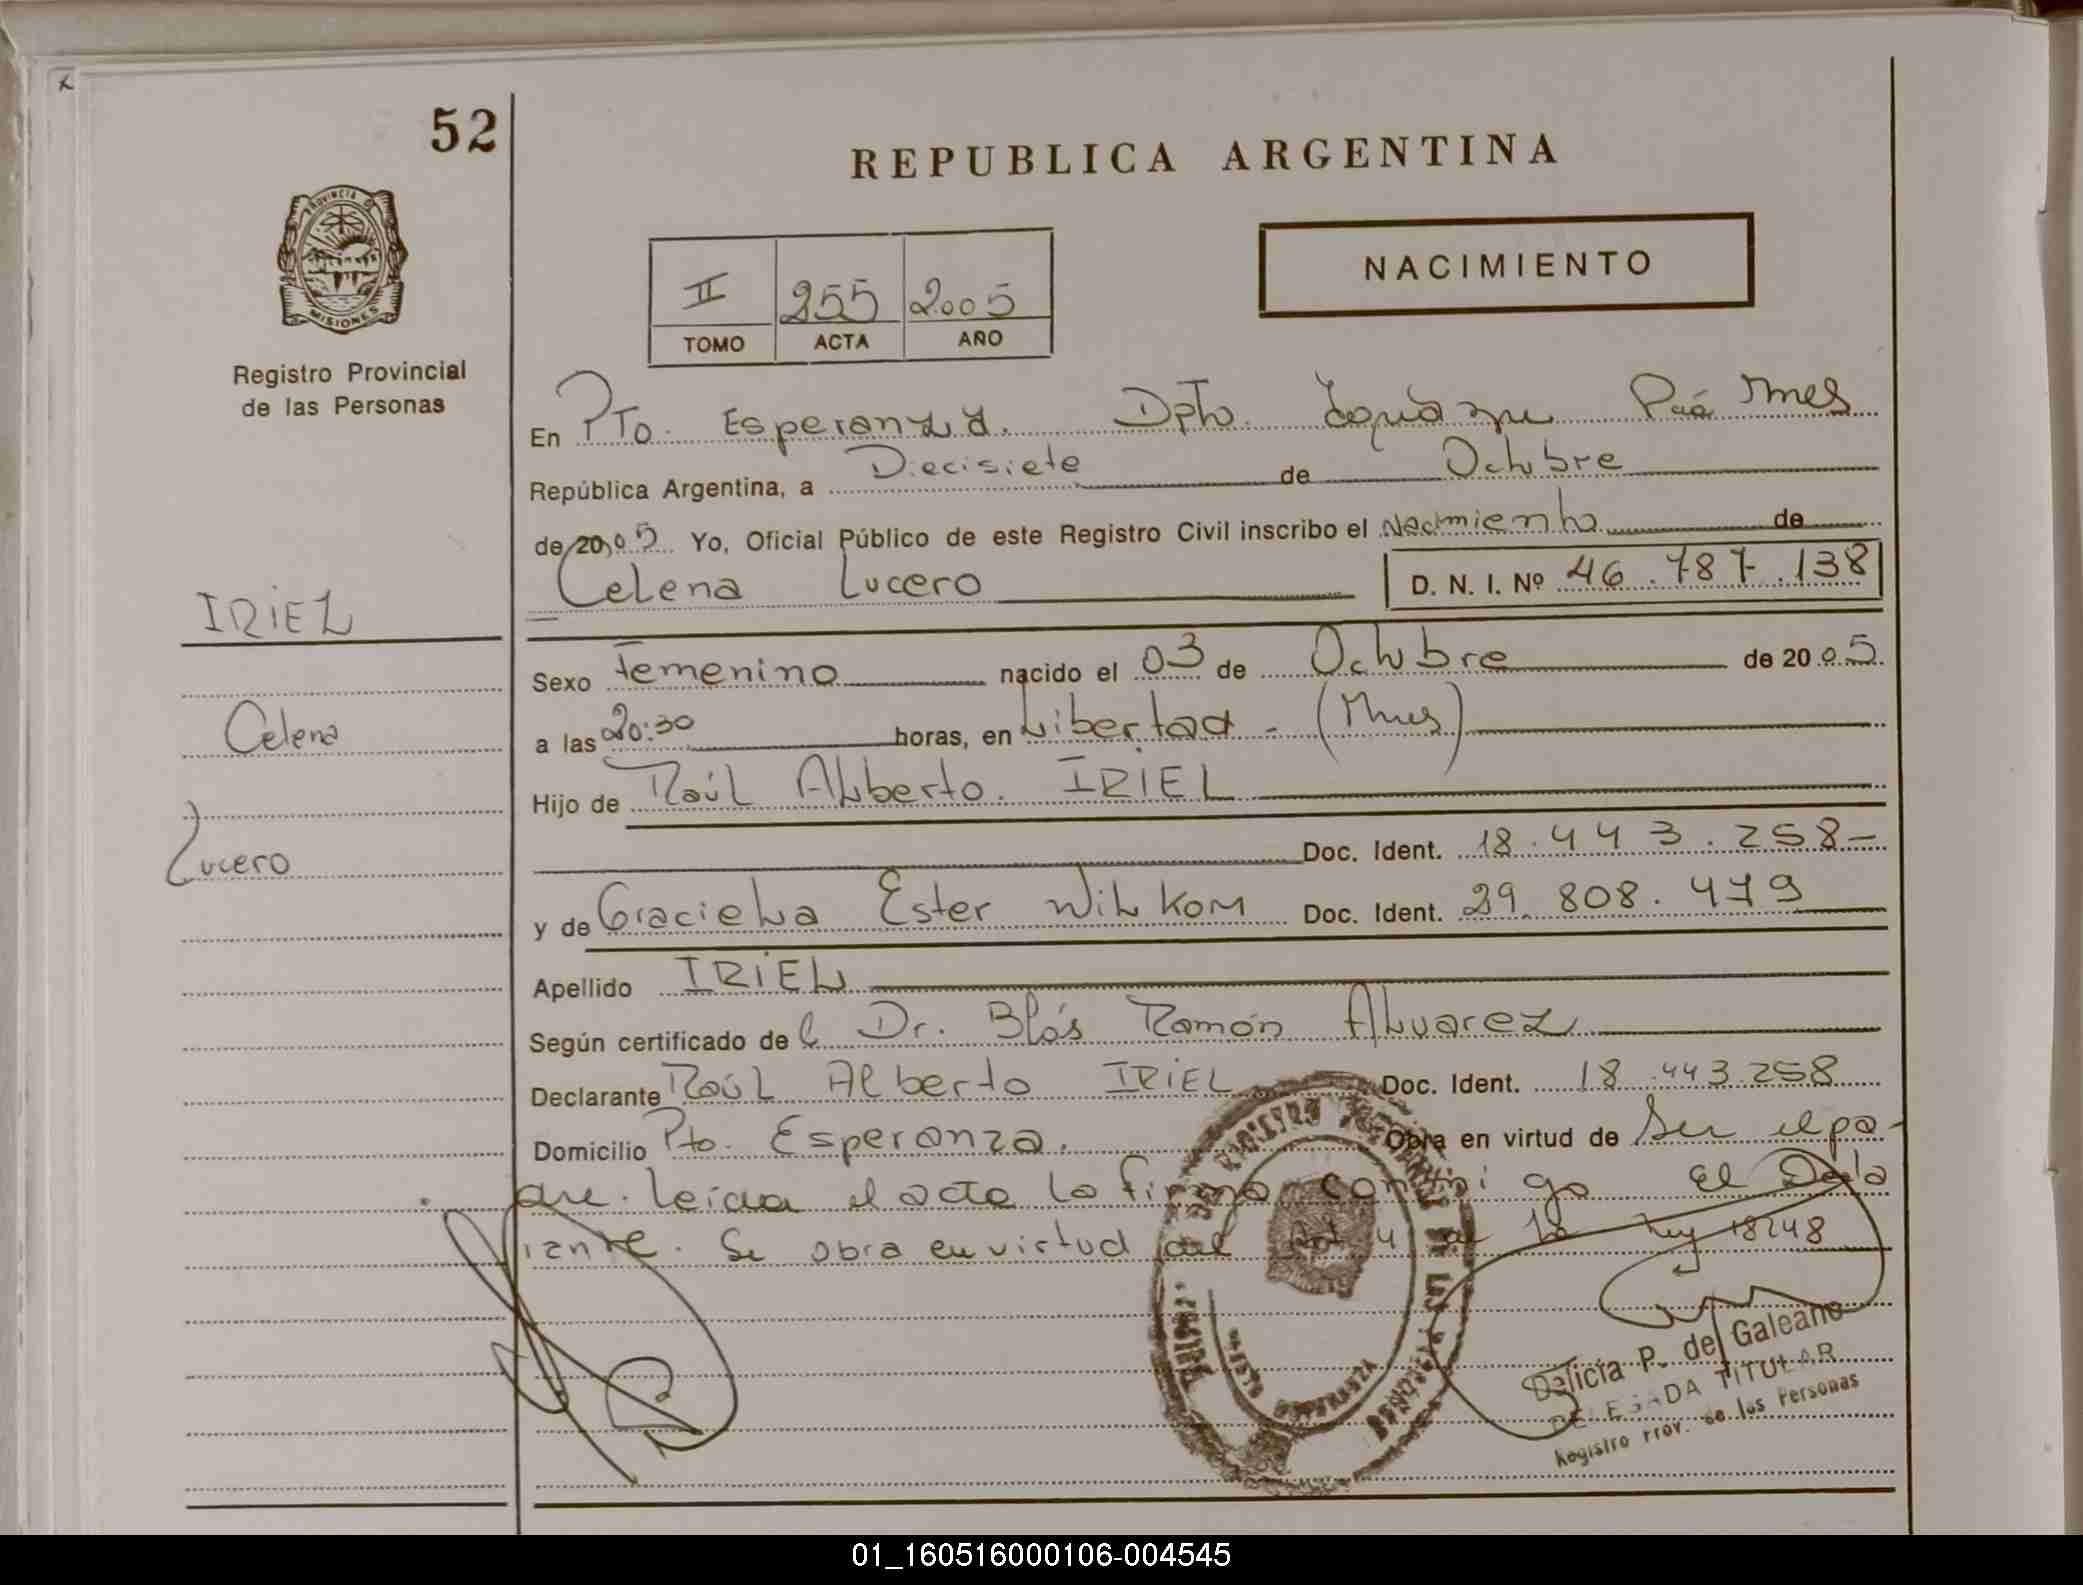 52
REPUBLICA ARGENTINA
PROVINCIA DE
MISIONES
Registro Provincial
de las Personas
II 255 2005
TOMO ACTA AÑO
NACIMIENTO
En Pto. Esperanza. Dpto. Iguazu Mnes
República Argentina, a Diecisiete de Octubre
de 2005 Yo, Oficial Público de este Registro Civil inscribo el Nacimiento de
Celena Lucero D. N. I. Nº 46.787.138
IRIEL
Celena
Lucero
Sexo femenino nacido el 03 de Octubre de 2005
a las 20:30 horas, en Libertad - (Mnes)
Hijo de Raúl Alberto. IRIEL
Doc. Ident. 18.443.258-
y de Graciela Ester Wilkom Doc. Ident. 29.808.479
Apellido IRIEL
Según certificado del Dr. Blás Ramón Alvarez
Declarante Raúl Alberto IRIEL Doc. Ident. 18.443.258
Domicilio Pto. Esperanza. Obra en virtud de Ser el pa-
dre. leida el acta la firma conmigo El Decla
rante. Se obra en virtud del Art 4 de la Ley 18248
Delicia P. de Galeano
DELEGADA TITULAR
Registro Prov. de las Personas
01_160516000106-004545